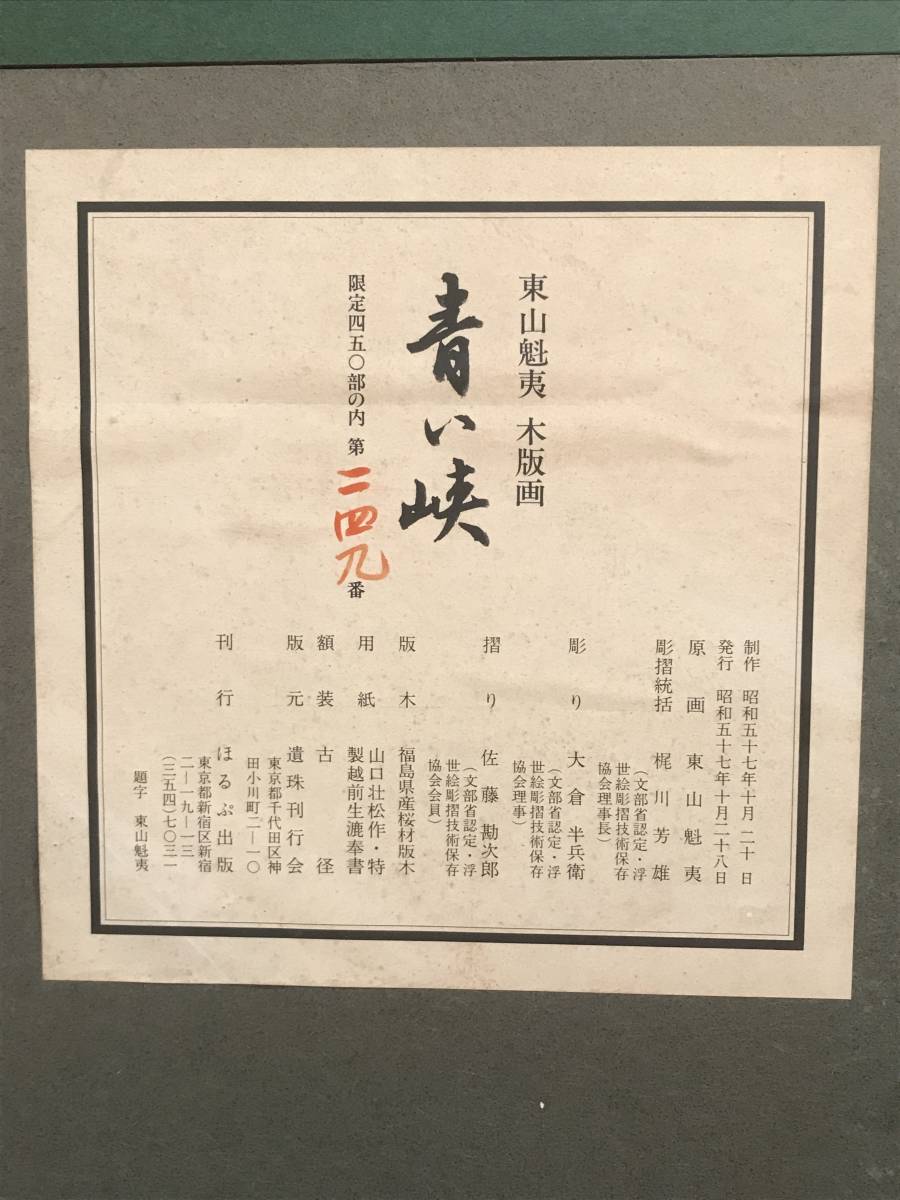 東山魁夷 木版画
青い峡
限定四五〇部の内 第二四九番
制作 昭和五十七年十月 二十日
発行 昭和五十七年十月二十八日
原画 東山魁夷
彫摺統括 梶川芳雄
(文部省認定・浮
世絵彫摺技術保存
協会理事長)
彫り 大倉半兵衛
(文部省認定・浮
世絵彫摺技術保存
協会理事)
摺り 佐藤勘次郎
(文部省認定・浮
世絵彫摺技術保存
協会会員)
版木 福島県産桜材版木
用紙 山口壮松作・特
製越前生漉奉書
額装 古径
版元 遺珠刊行会
東京都千代田区神
田小川町二―一〇
刊行 ほるぷ出版
東京都新宿区新宿
二―一九―一三
(三五四)七〇三一
題字 東山魁夷